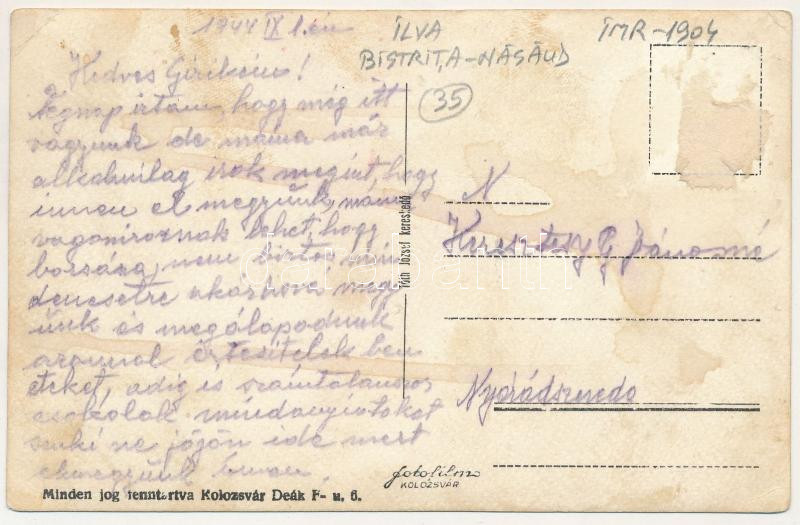 1944 IX 1.én
ILVA
BISTRIȚA-NĂSĂUD
IMR-1904
35
Kedves Girikém!
Tegnap írtam, hogy még itt
vagyunk de máma már
alkalmilag irok megint, hogy
innen el megyünk, máma
vagoniroznak lehet, hogy
borsára, nem biztos min
denesetre akárhová megy
ünk és megálapodunk
azonnal értesitelek ben
neteket, adig is számtalanszor
csokolak mindanyiotokat
senki ne jöjön ide mert
elmegyünk innen.
N
Keresztesy G Jánosné
Nyárádszereda
Tóth József kereskedő
fotofilm
KOLOZSVÁR
Minden jog fenntartva Kolozsvár Deák F- u. 6.
darabanth